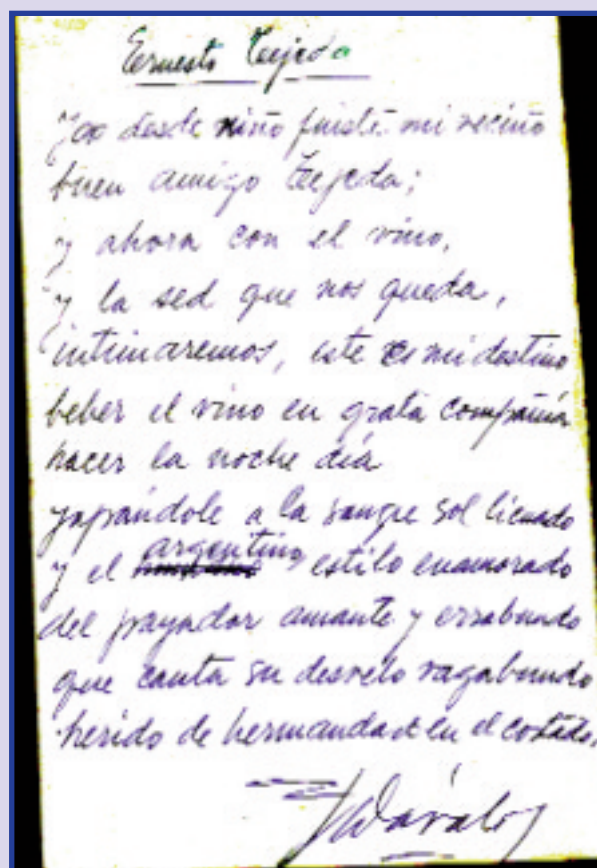 Ernesto Tejeda
Ya desde niño fuiste mi vecino
buen amigo Tejeda;
y ahora con el vino,
y la sed que nos queda,
intimaremos, este es mi destino
beber el vino en grata compañía
hacer la noche día
yapándole a la sangre sol licuado
y el argentino estilo enamorado
del payador amante y errabundo
que canta su desvelo vagabundo
herido de hermandad en el costado,
Dávalos